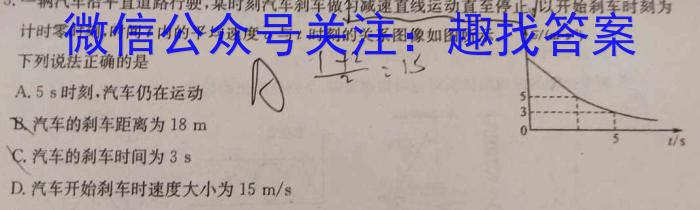 一辆汽车沿平直道路行驶,某时刻汽车刹车做匀减速直线运动直至停止,以开始刹车时刻为
计时零
微信公众号关注:趣找答案
下列说法正确的是
1+2/2=15
A. 5 s时刻,汽车仍在运动
B. 汽车的刹车距离为 18 m
C. 汽车的刹车时间为 3 s
D. 汽车开始刹车时速度大小为 15 m/s
5
3
0
5
t/s